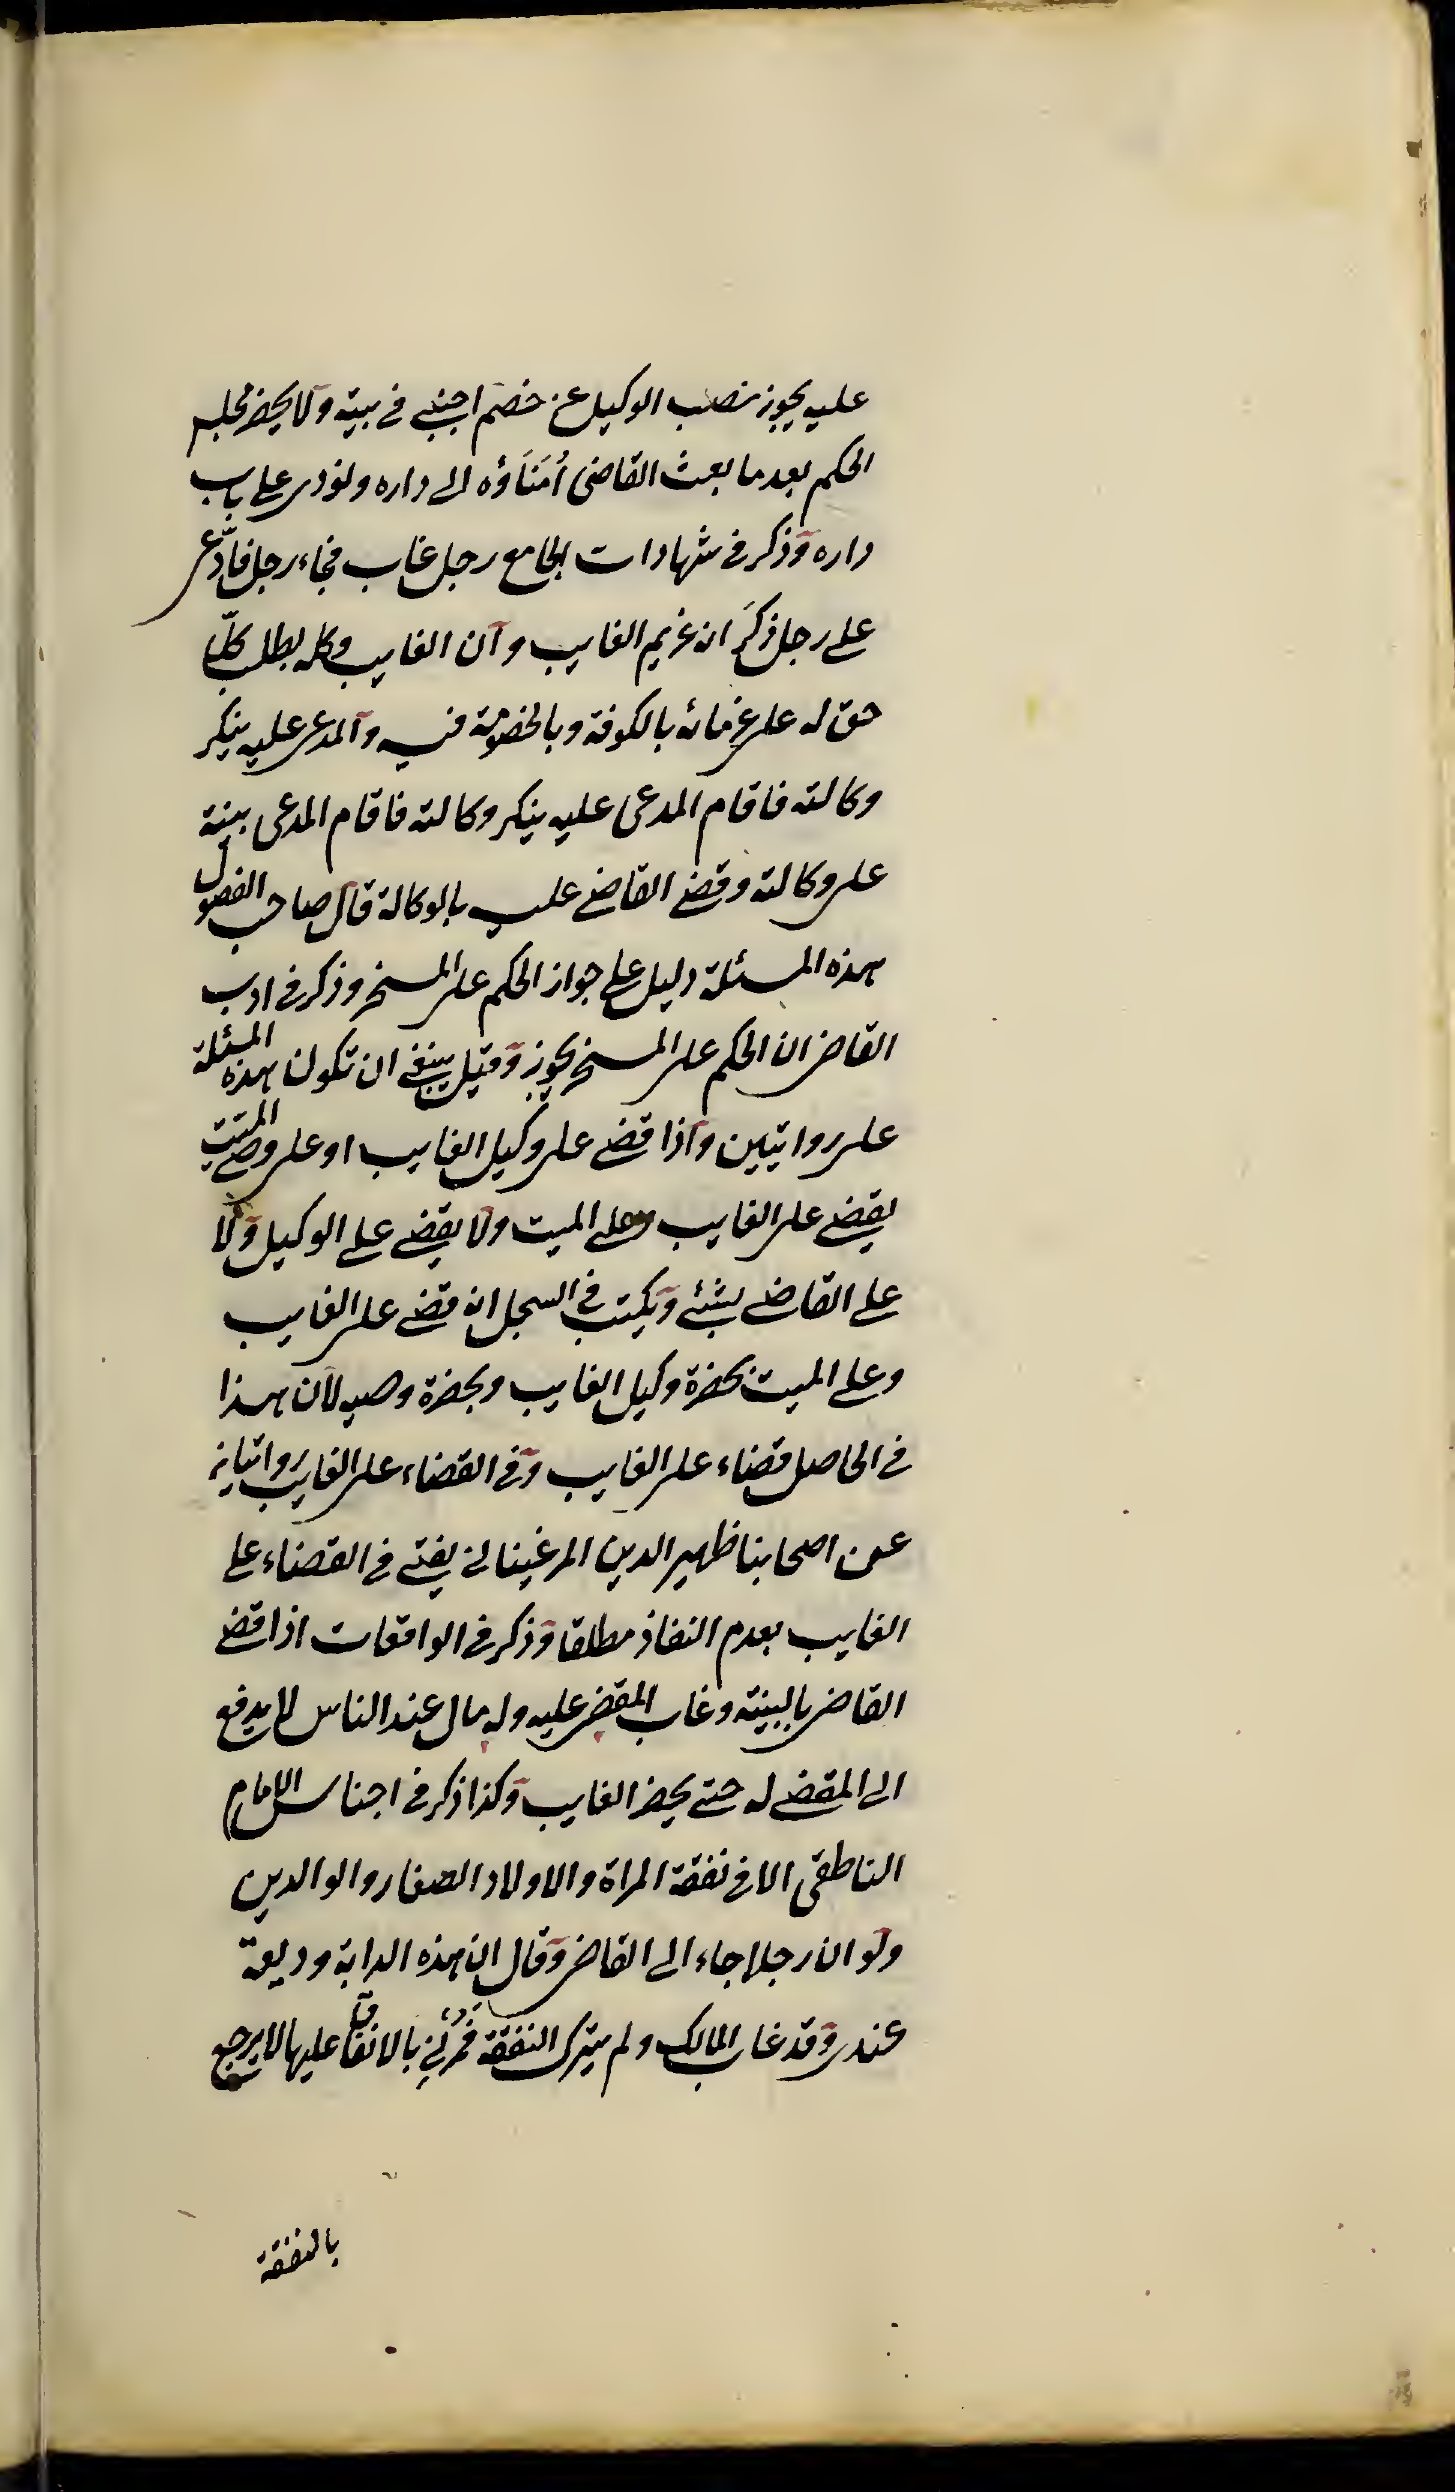 عليه يجوز نصب الوكيل عن خصم اختفى في بيته ولا يحضر مجلس
الحكم بعد ما بعث القاضى أُمَنَاؤه الى داره ونودى على باب
داره وذكر في شهادات الجامع رجل غاب فجاء رجل فادّعى
على رجل ذكَرَ انه غريم الغايب وان الغايب وكله بطلب كلّ
حق له على غرمائه بالكوفة وبالخصومة فيه والمدعى عليه ينكر
وكالته فاقام المدعى عليه ينكر وكالته فاقام المدعى بينة
على وكالته وقضى القاضى عليه بالوكالة قال صاحب الفصول
هذه المسئلة دليل على جواز الحكم على المسخر وذكر في ادب
القاضى ان الحكم على المسخر يجوز وقيل ينبغى ان تكون هذه المسئلة
على روايتين واذا قضى على وكيل الغايب او على وصى الميت
يقضى على الغايب وعلى الميت ولا يقضى على الوكيل ولا
على القاضى بشئ ويكتب في السجل انه قضى على الغايب
وعلى الميت بحضرة وكيل الغايب وبحضرة وصيه لان هذا
في الحاصل قضاء على الغايب وفي القضاء على الغايب روايتان
عن اصحابنا ظهير الدين المرغينانى يفتى في القضاء على
الغايب بعدم النفاذ مطلقا وذكر في الواقعات اذا قضى
القاضى بالبينة وغاب المقضى عليه وله مال عند الناس لا يدفع
الى المقضى له حتى يحضر الغايب وكذا ذكر في اجناس الامام
الناطقى الا في نفقة المراة والاولاد الصغار والوالدين
ولو ان رجلا جاء الى القاضى وقال ان هذه الدابة وديعة
عندى وقد غاب المالك ولم يترك النفقة فمُرْنى بالانفاق عليها لا يرجع
بالنفقة